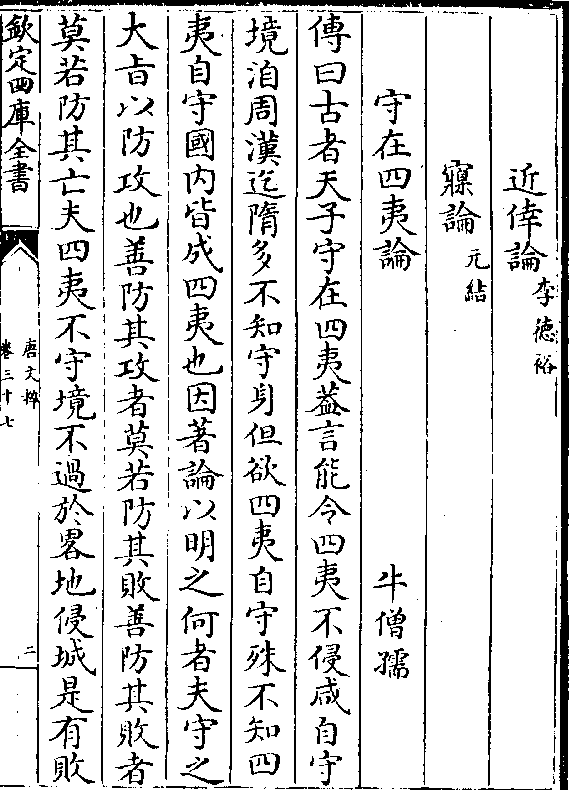 近倖論李德裕
寱論元結
守在四夷論 牛僧孺
傳曰古者天子守在四夷葢言能令四夷不侵咸自守
境洎周漢迄隋多不知守身但欲四夷自守殊不知四
夷自守國内皆成四夷也因著論以明之何者夫守之
大㫖以防攻也善防其攻者莫若防其敗善防其敗者
莫若防其亡夫四夷不守境不過於畧地侵城是有敗
欽定四庫全書
唐文粹
卷三十七
二